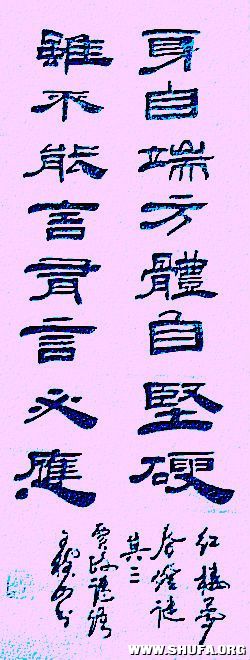 身自端方體自堅硬
雖不能言有言必應
红楼夢
春燈谜
其三
賈政謎語
WWW.SHUFA.ORG